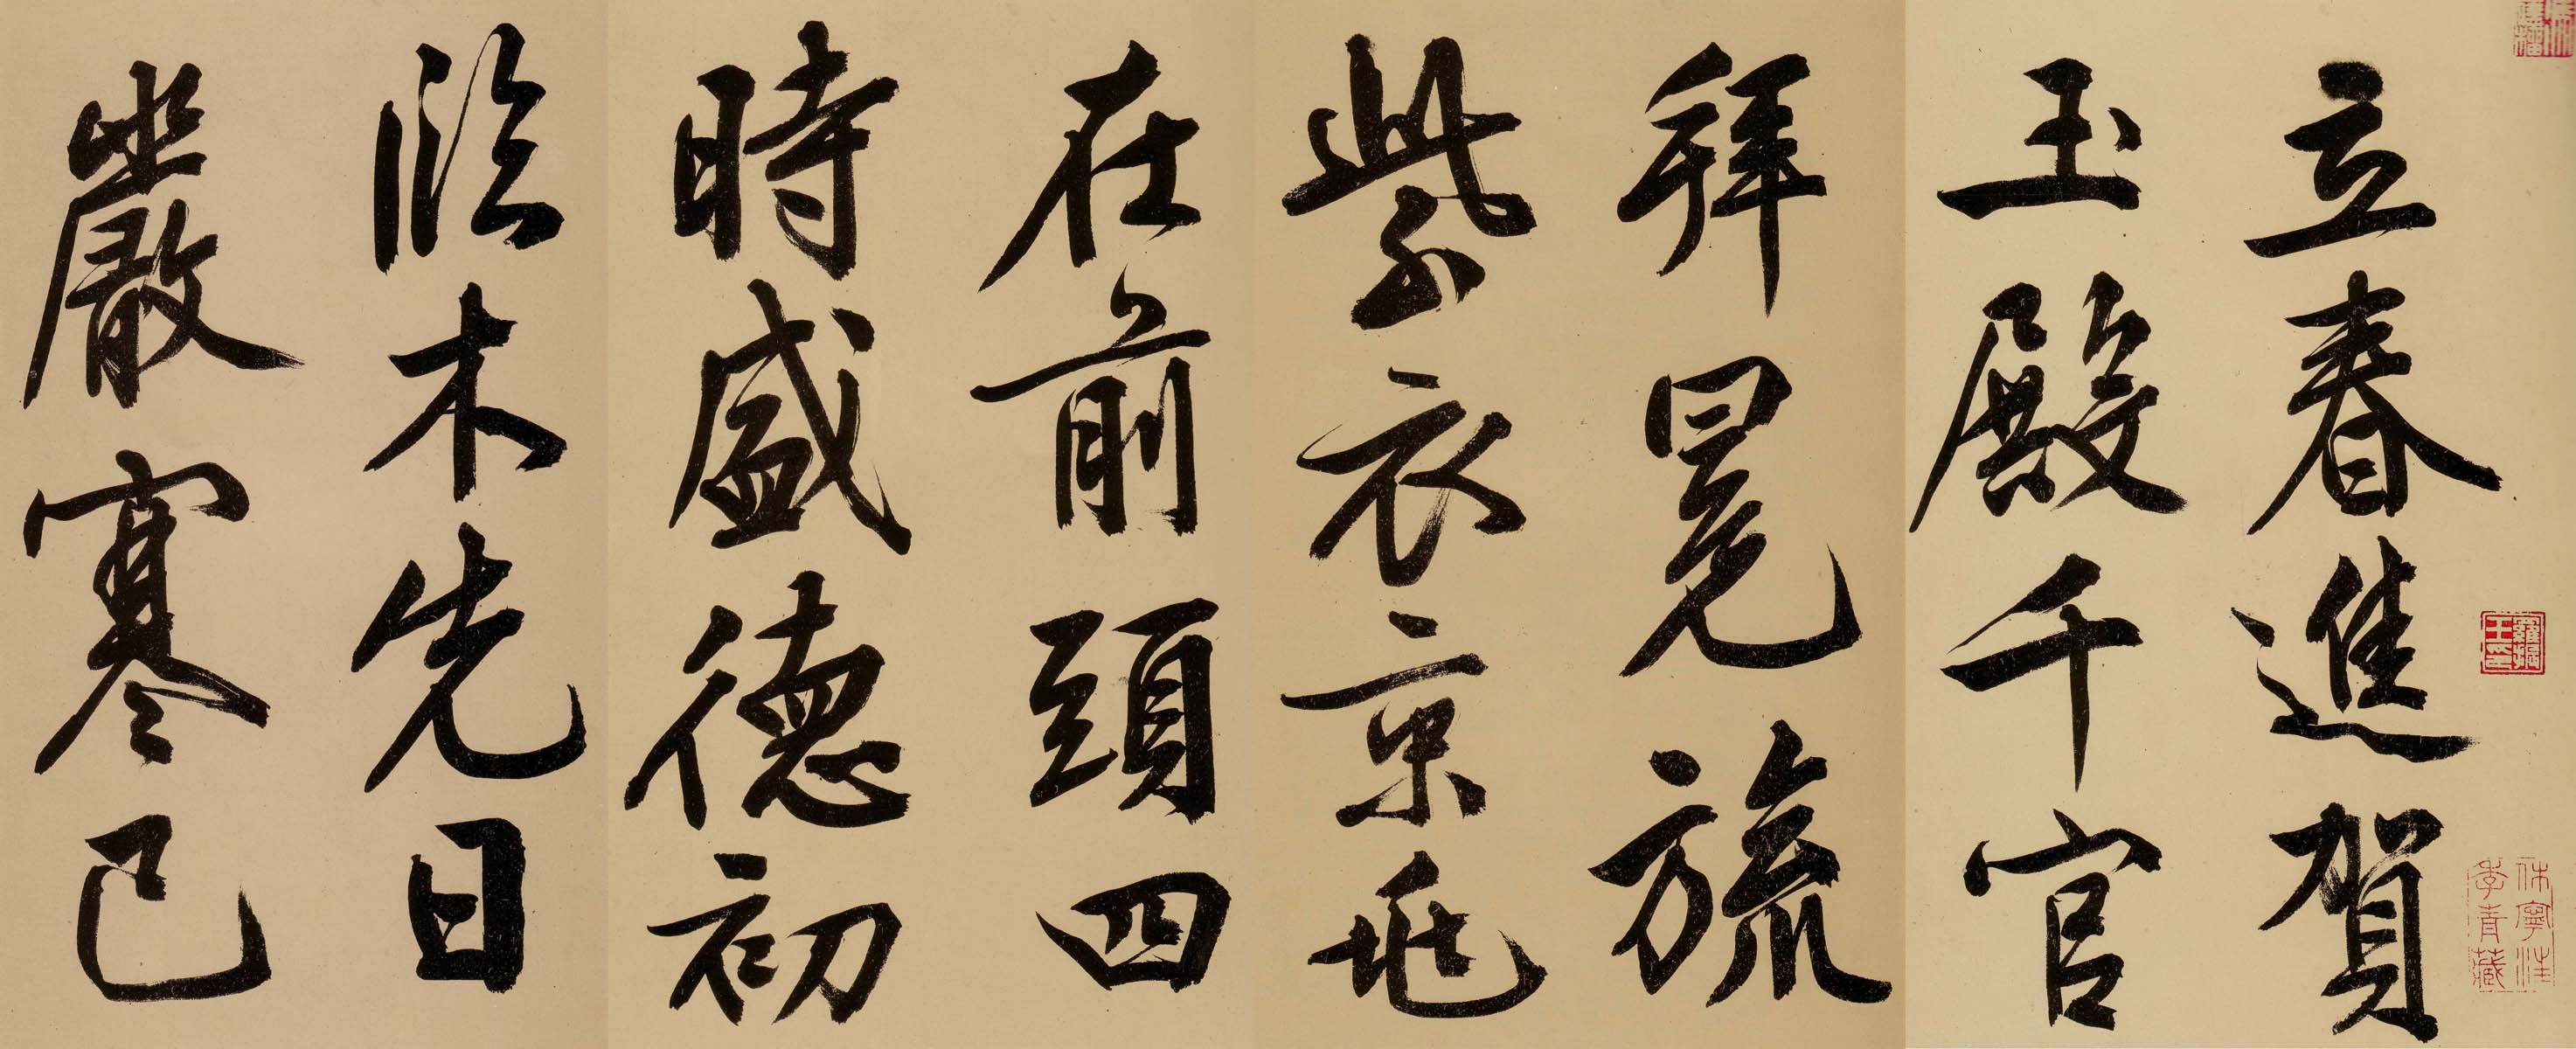 立春進賀
玉殿千官
拜冕旒
紫衣京兆
在前頭四
時盛德初
臨木先日
嚴寒已
羅振玉印
休寧汪季青藏